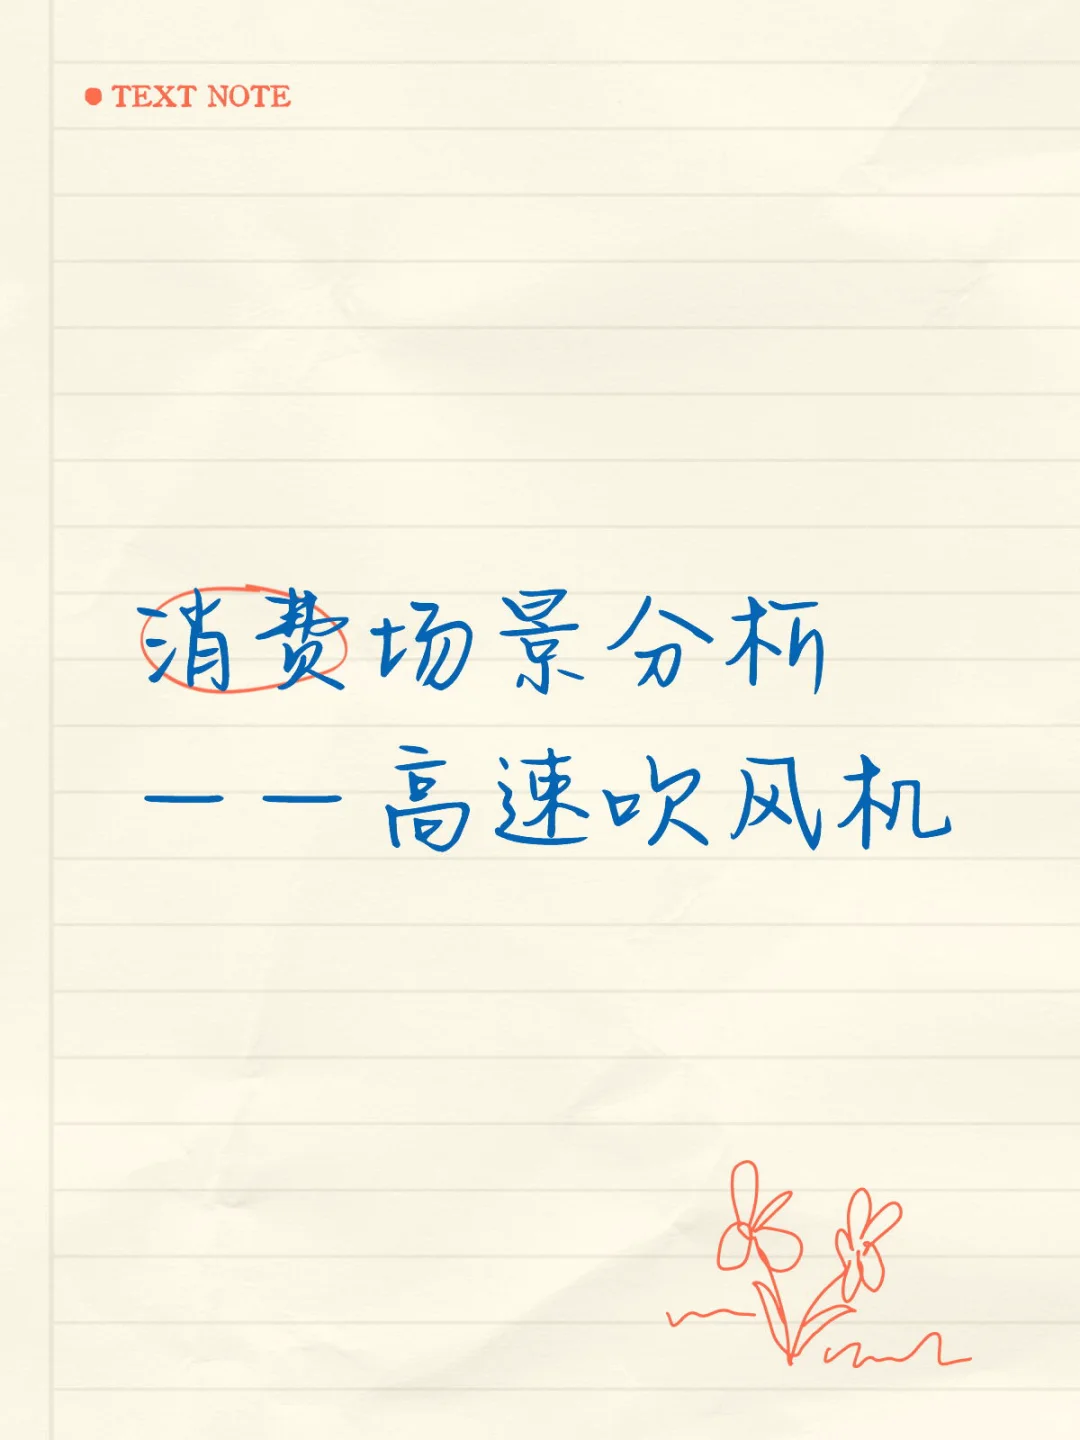 TEXT NOTE
消费场景分析
——高速吹风机